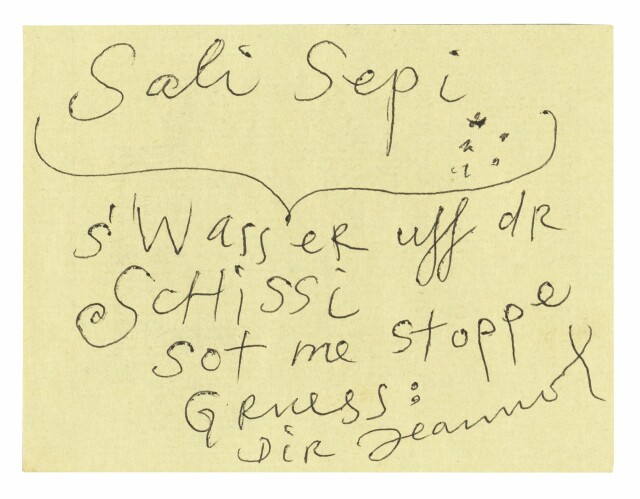 Sali Sepi
s'Wasser uff dr
Schissi
sot me stoppe
Gruess:
Dir Jeannot